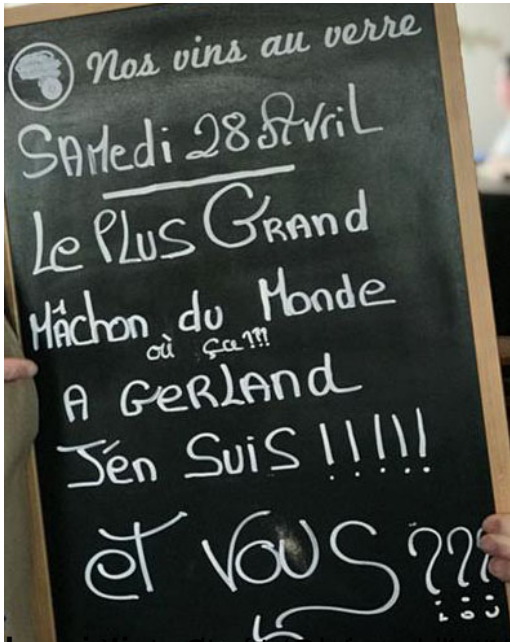 Nos vins au verre
SAMedi 28 AVriL
Le PLUS GRANd
MÂChon du Monde
où ça !!!
A GeRLANd
J'én SuiS !!!!!
et VOUS ???